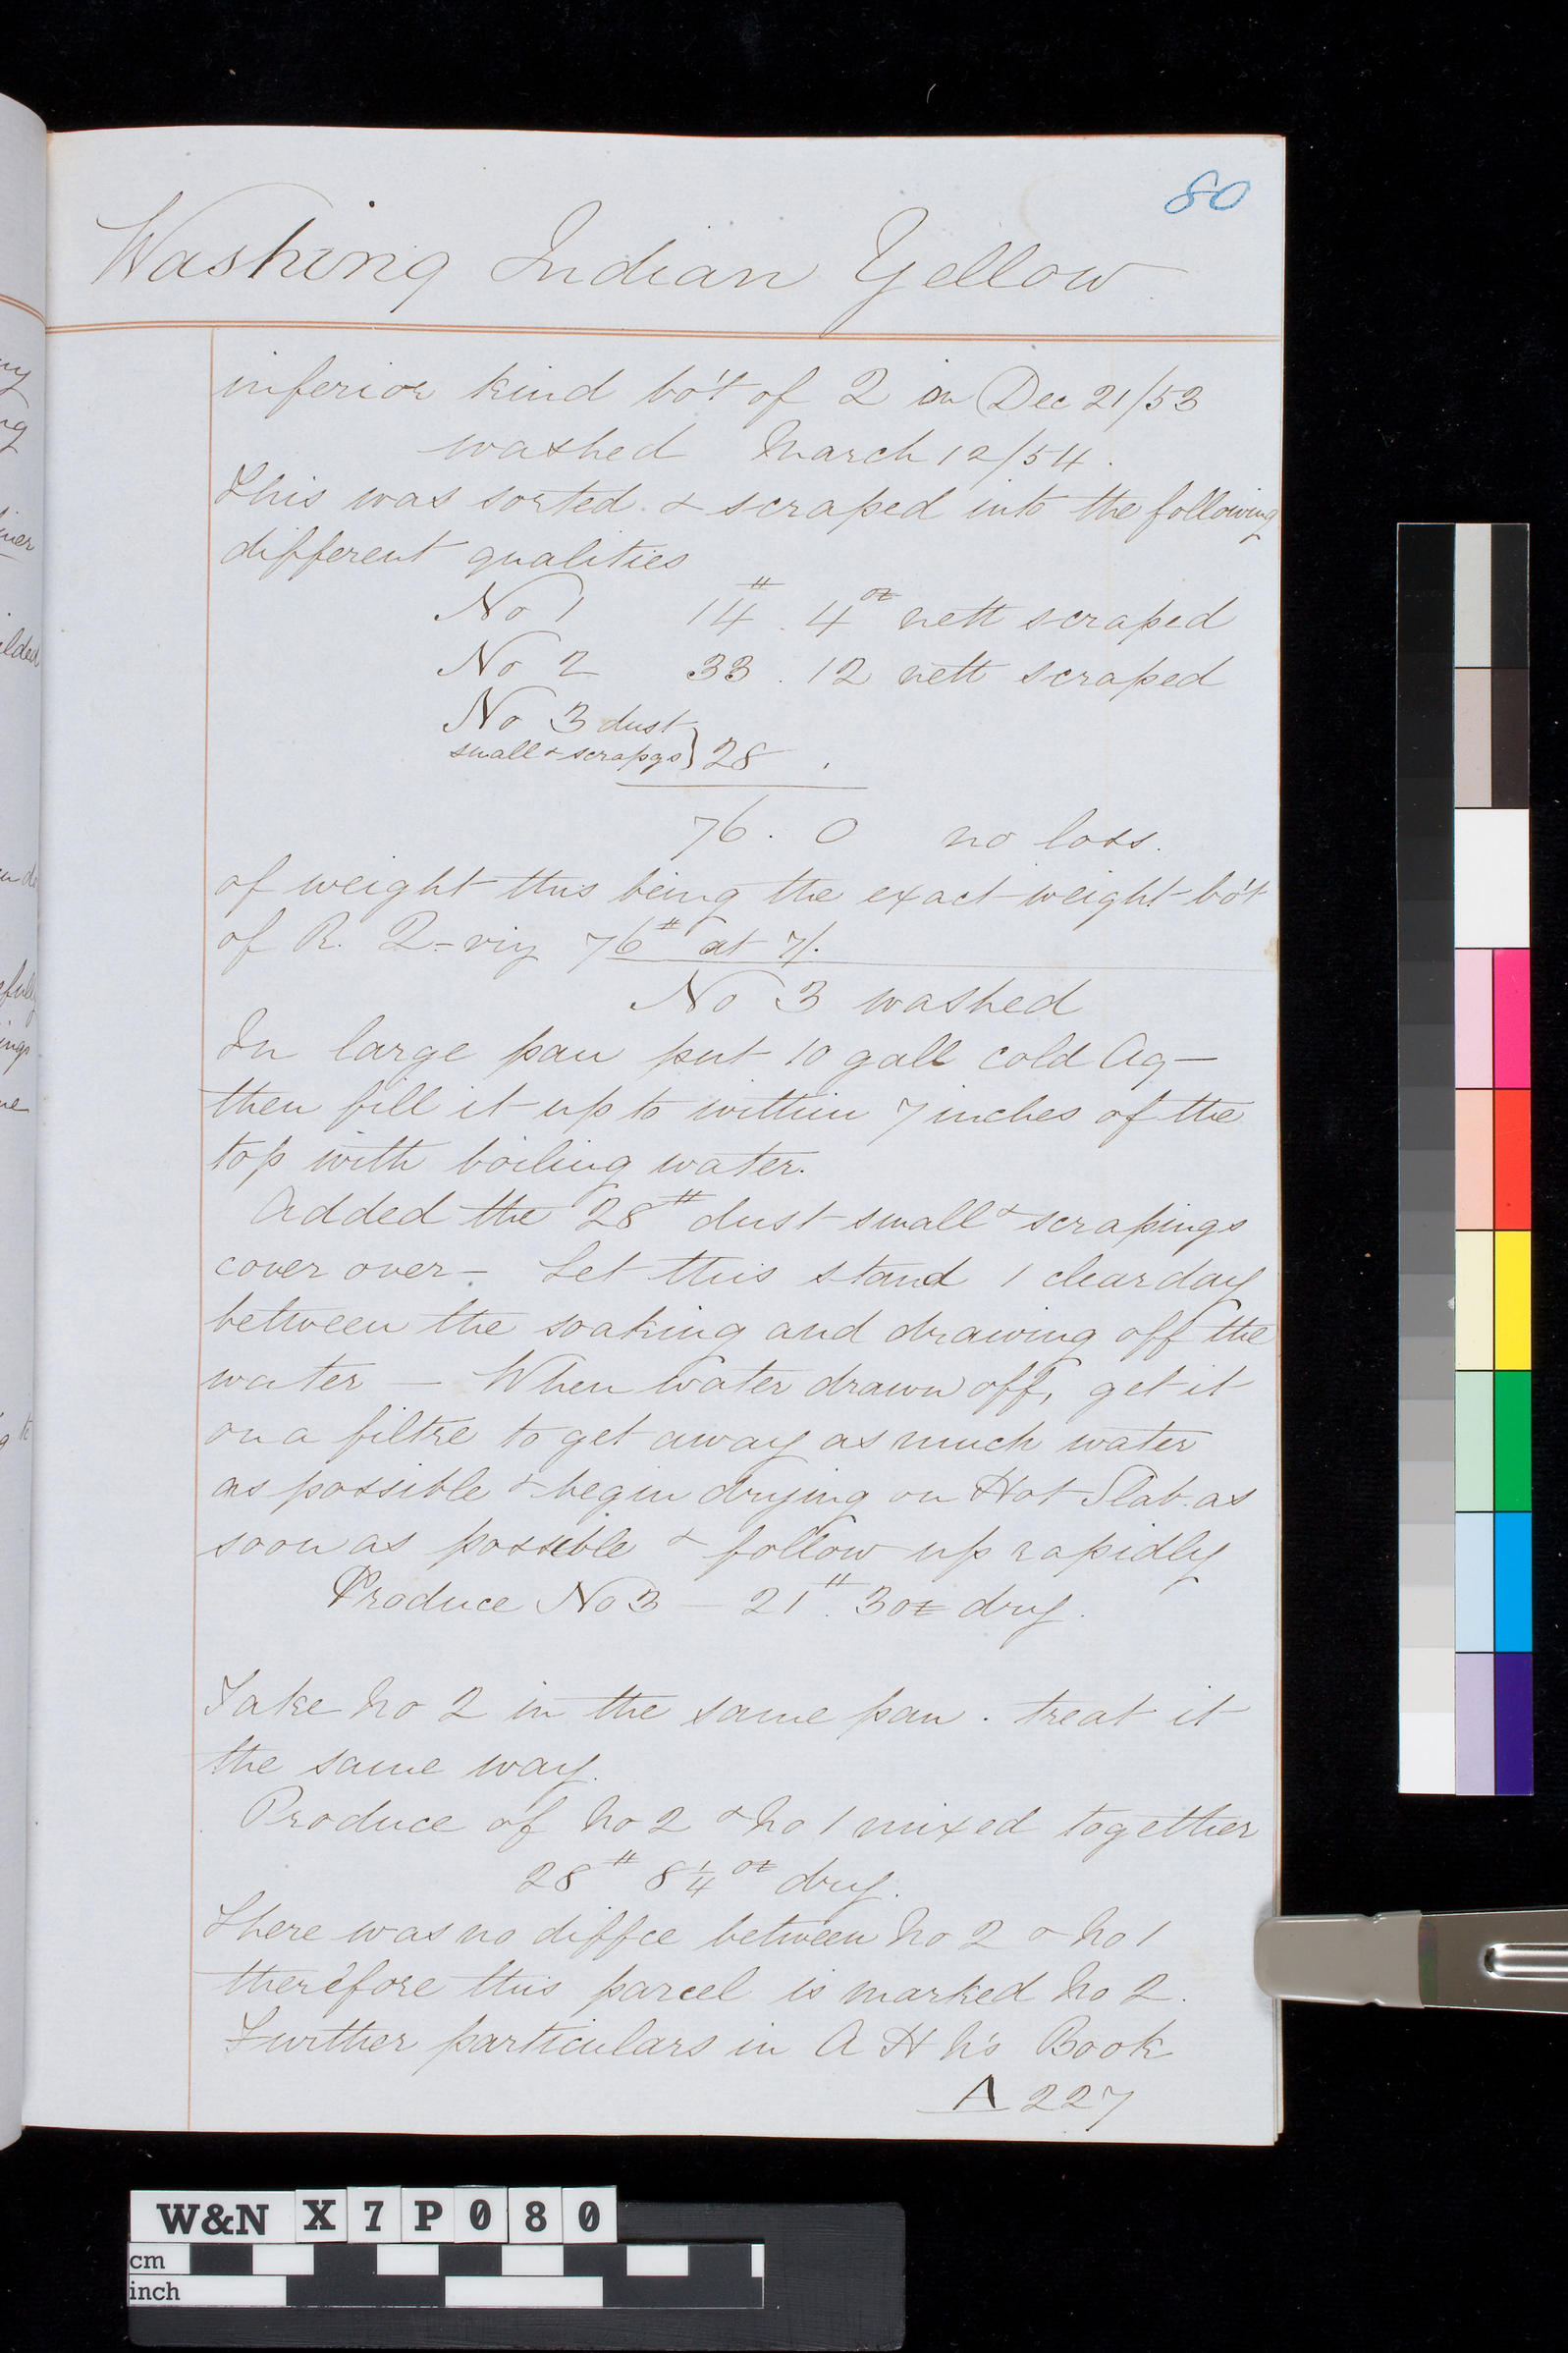 80
Washing Indian Yellow
inferior kind bo't of Q in Dec 21/53
washed March 12/54.
This was sorted & scraped into the following
different qualities
No 1 14# . 4oz nett scraped
No 2 33 . 12 nett scraped
No 3 dust
small & scrapgs} 28 .
76 . 0 no loss.
of weight this being the exact weight bo't
of R. Q - viz 76# at 7/.
No 3 washed
In large pan put 10 gall cold Aq -
then fill it up to within 7 inches of the
top with boiling water.
Added the 28# dust small & scrapings
cover over - Let this stand 1 clear day
between the soaking and drawing off the
water - When water drawn off, get it
on a filtre to get away as much water
as possible & begin drying on Hot Slab as
soon as possible & follow up rapidly
Produce No 3 - 21#. 3oz dry.
Take No 2 in the same pan . treat it
the same way.
Produce of No 2 & No 1 mixed together
28# 8 1/4 oz dry.
There was no diffce between No 2 & No 1
therefore this parcel is marked No 2.
Further particulars in A H N's Book
A 227
W&N X 7 P 0 8 0
cm
inch